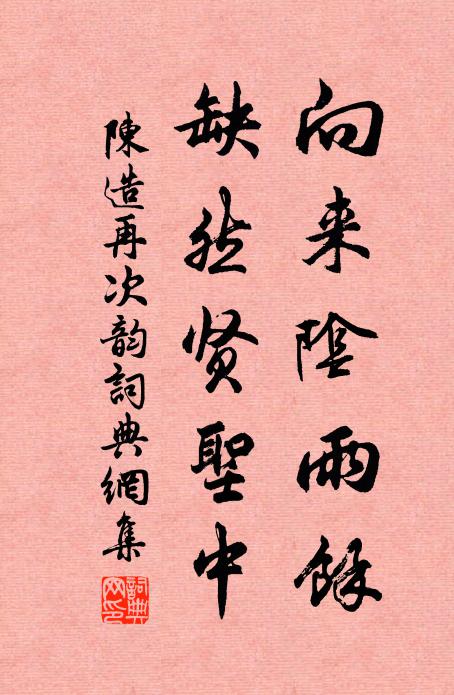 向来陰雨餘
缺然贤聖中
陳造再次韵詞典網集
詞典網印